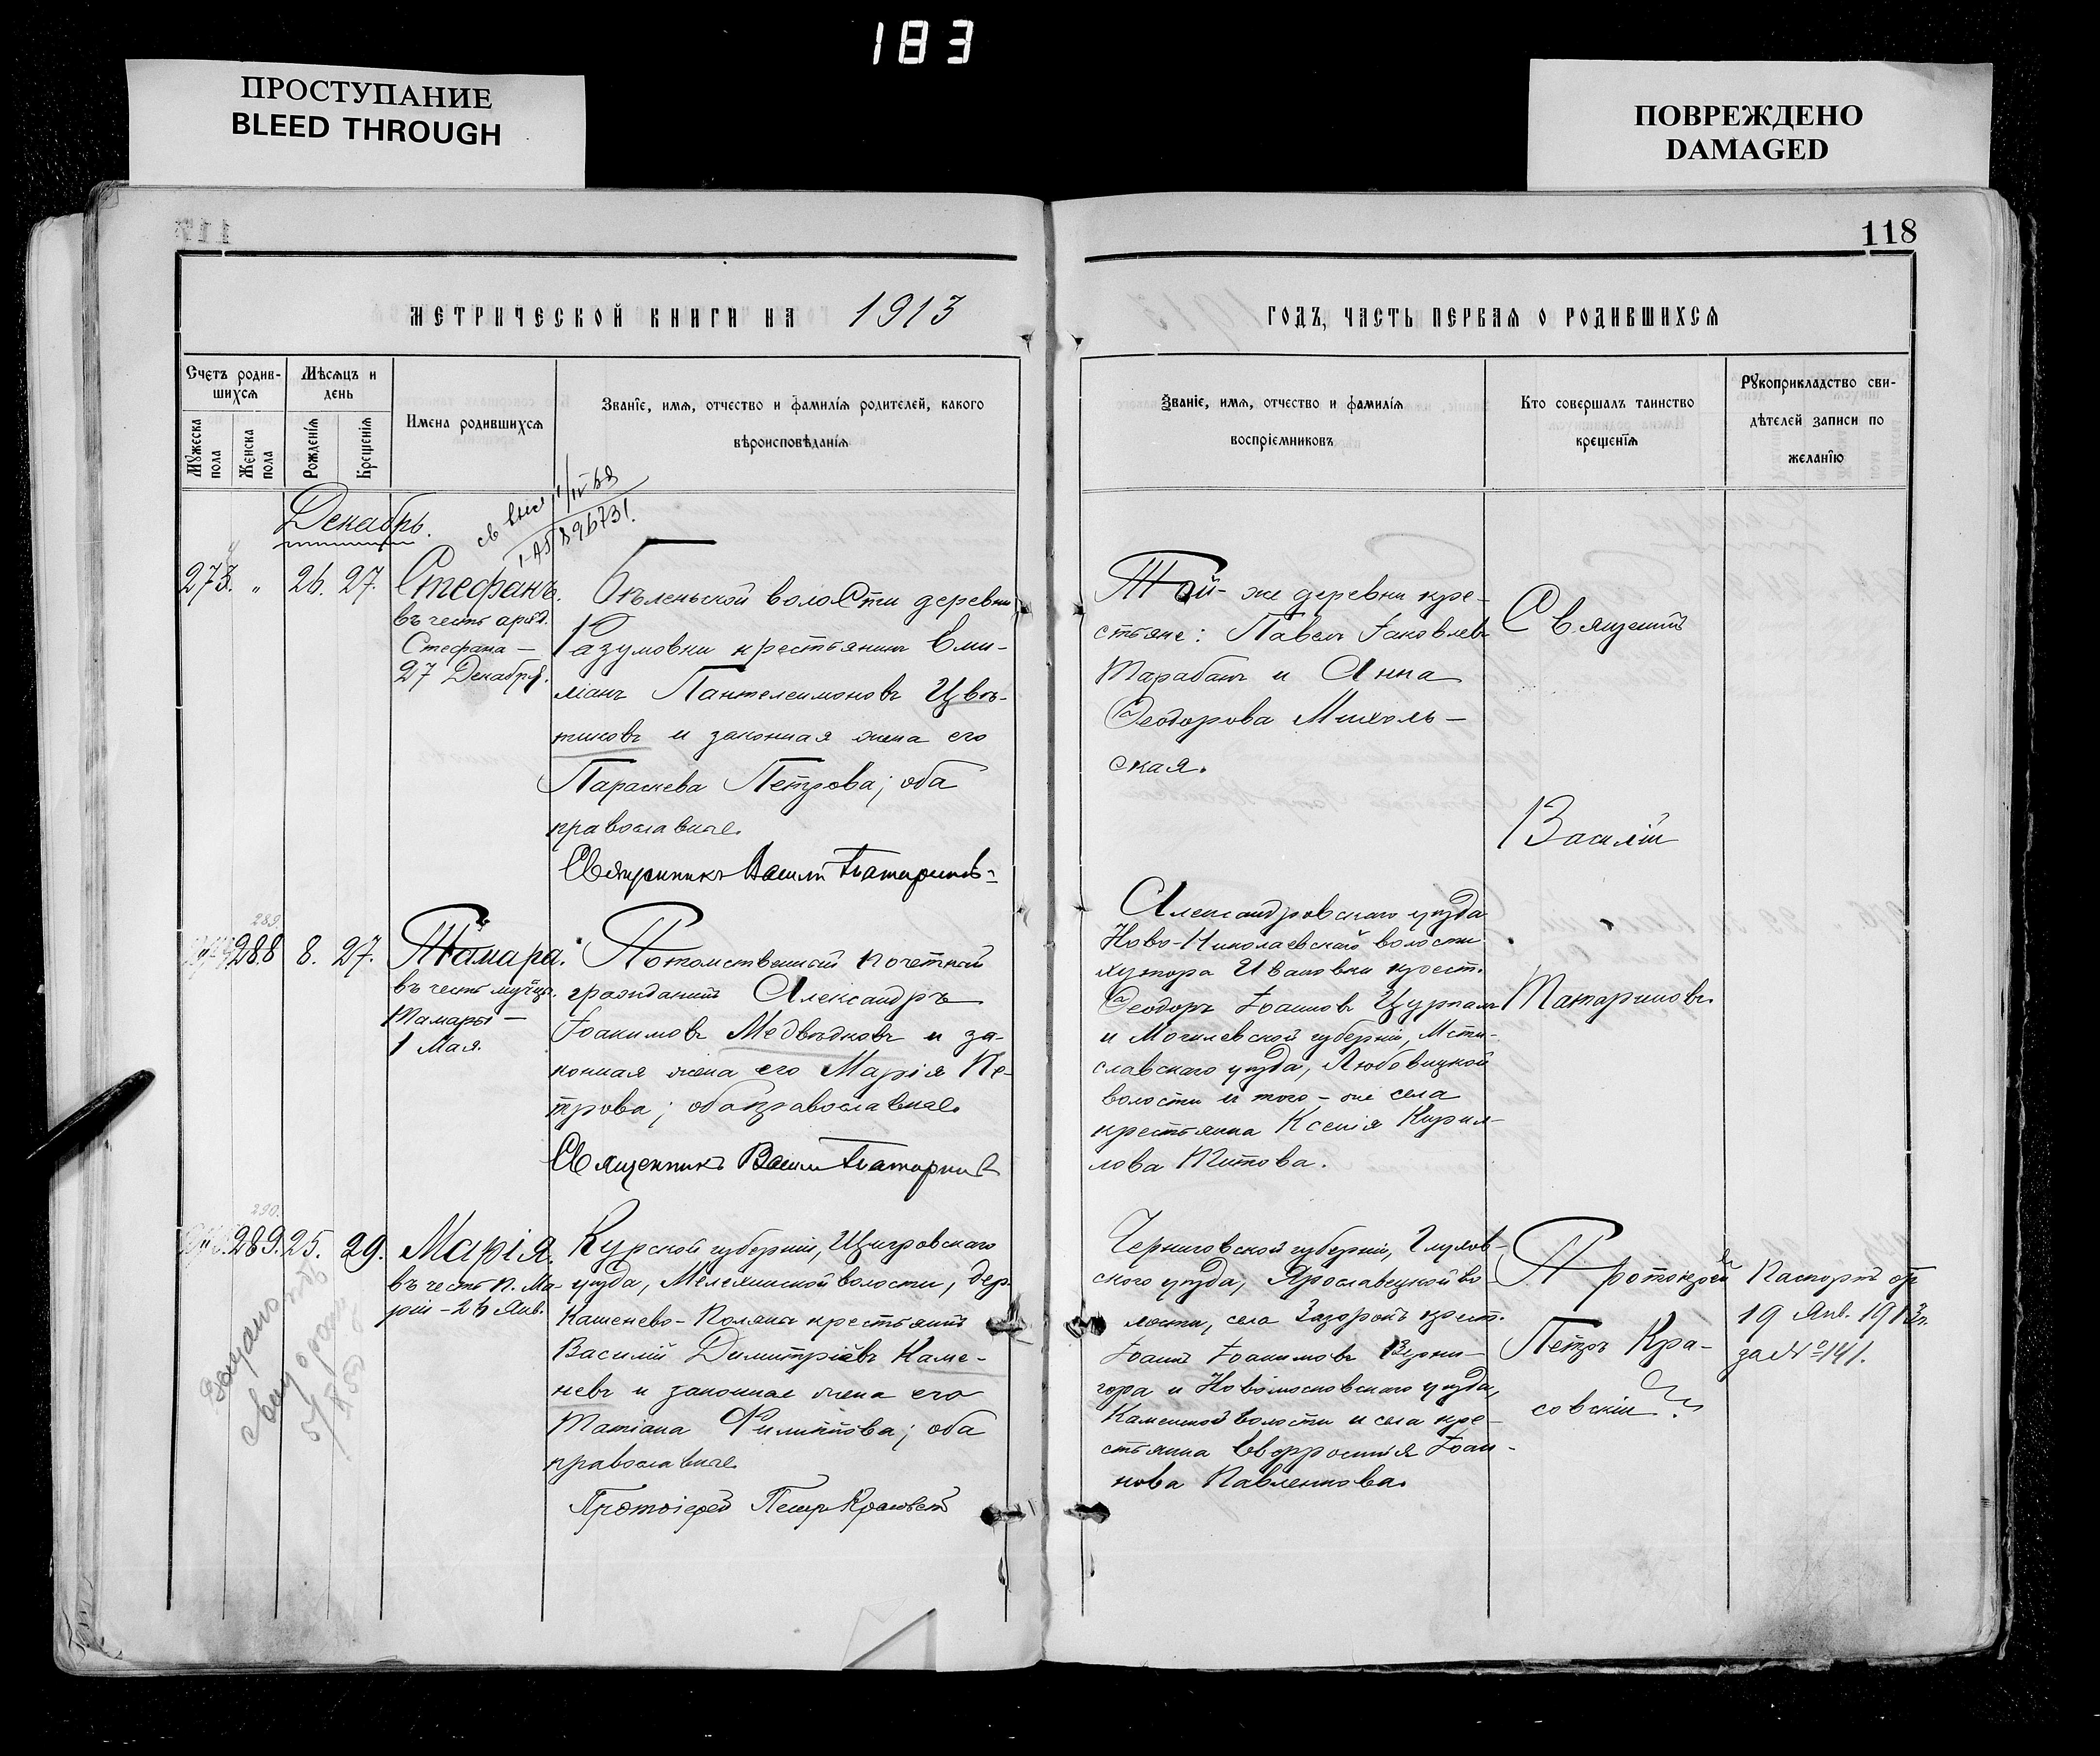 183
ПРОСТУПАНИЕ
BLEED THROUGH
ПОВРЕЖДЕНО
DAMAGED
118
МЕТРИЧЕСКОЙ КНИГИ НА 1913
ГОДЪ, ЧАСТЬ ПЕРВАЯ О РОДИВШИХСЯ
Счетъ родив-
шихся
Мужеска пола
Женска пола
Мѣсяцъ и
день
Рожденія
Крещенія
Имена родившихся
Званіе, имя, отчество и фамилія родителей, какого
вѣроисповѣданія
Званіе, имя, отчество и фамилія
воспріемниковъ
Кто совершалъ таинство
крещенія
Рукоприкладство сви-
дѣтелей записи по
желанію
Декабрь.
273. „ 26. 27. Стефанъ.
въ честь
Стефана —
27 Декабря.
волости деревни
Разумовки крестьянинъ Еми-
ліанъ Пантелеимоновъ Цвѣт-
никовъ и законная жена его
Параскева Петрова; оба
православные.
Священникъ Василій Татариновъ
Той-же деревни кре-
стьяне: Павелъ Іаковлевъ
Тарабанъ и Анна
Ѳеодорова
ская.
Священникъ
Василій
Татариновъ.
289
288 8. 27. Тамара.
въ честь муч-цы
Тамары —
1 Мая.
Потомственный почетный
гражданинъ Александръ
Іоакимовъ Медвѣдковъ и за-
конная жена его Марія Пе-
трова; оба православные.
Священникъ Василій Татариновъ
Александровскаго уѣзда
Ново-Николаевской волости
хутора Ивановки крест.
Ѳеодоръ Іоанновъ Цурпалъ
и Могилевской губерніи, Мсти-
славскаго уѣзда, Любовицкой
волости и того-же села
крестьянка Ксенія Кирил-
лова Титова.
290.
289. 25. 29. Марія.
въ честь п. Ма-
ріи – 26 Янв.
Курской губерніи, Щигровскаго
уѣзда, Мелехинской волости, дер.
Каменево-Поляны крестьянинъ
Василій Димитріевъ Каме-
невъ и законная жена его
Татіана Филиппова; оба
православные.
Протоіерей Петръ Красовскій
Черниговской губерніи, Глухов-
скаго уѣзда, Ярославецкой во-
лости, села крест.
Іоаннъ Іоакимовъ Верни-
гора и Новомосковскаго уѣзда,
Каменской волости и села кре-
стьянка Евфросинія Іоан-
нова Павленкова.
Протоіерей
Петръ Кра-
совскій
Паспортъ от
19 Янв. 1913 г.
за № 141.